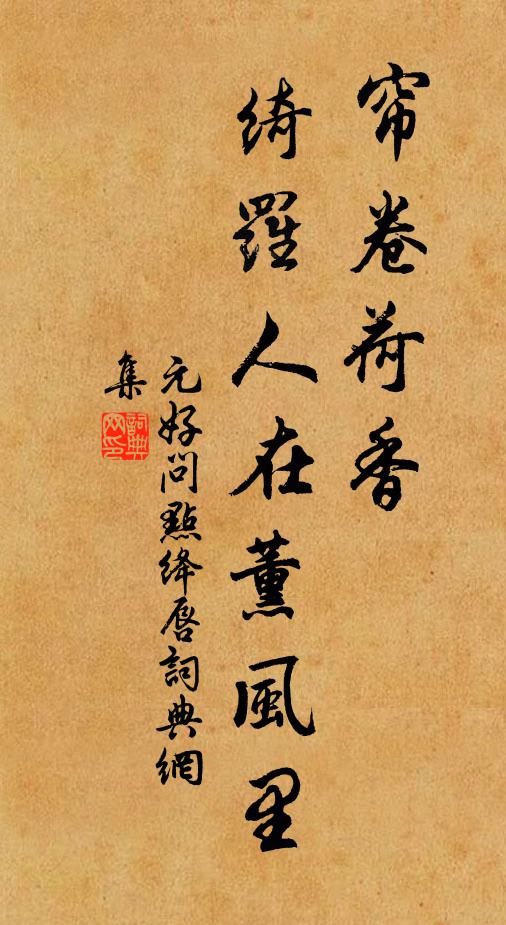 帘卷荷香
綺羅人在薰風里
元好问點绛唇詞典網
集
詞典網印